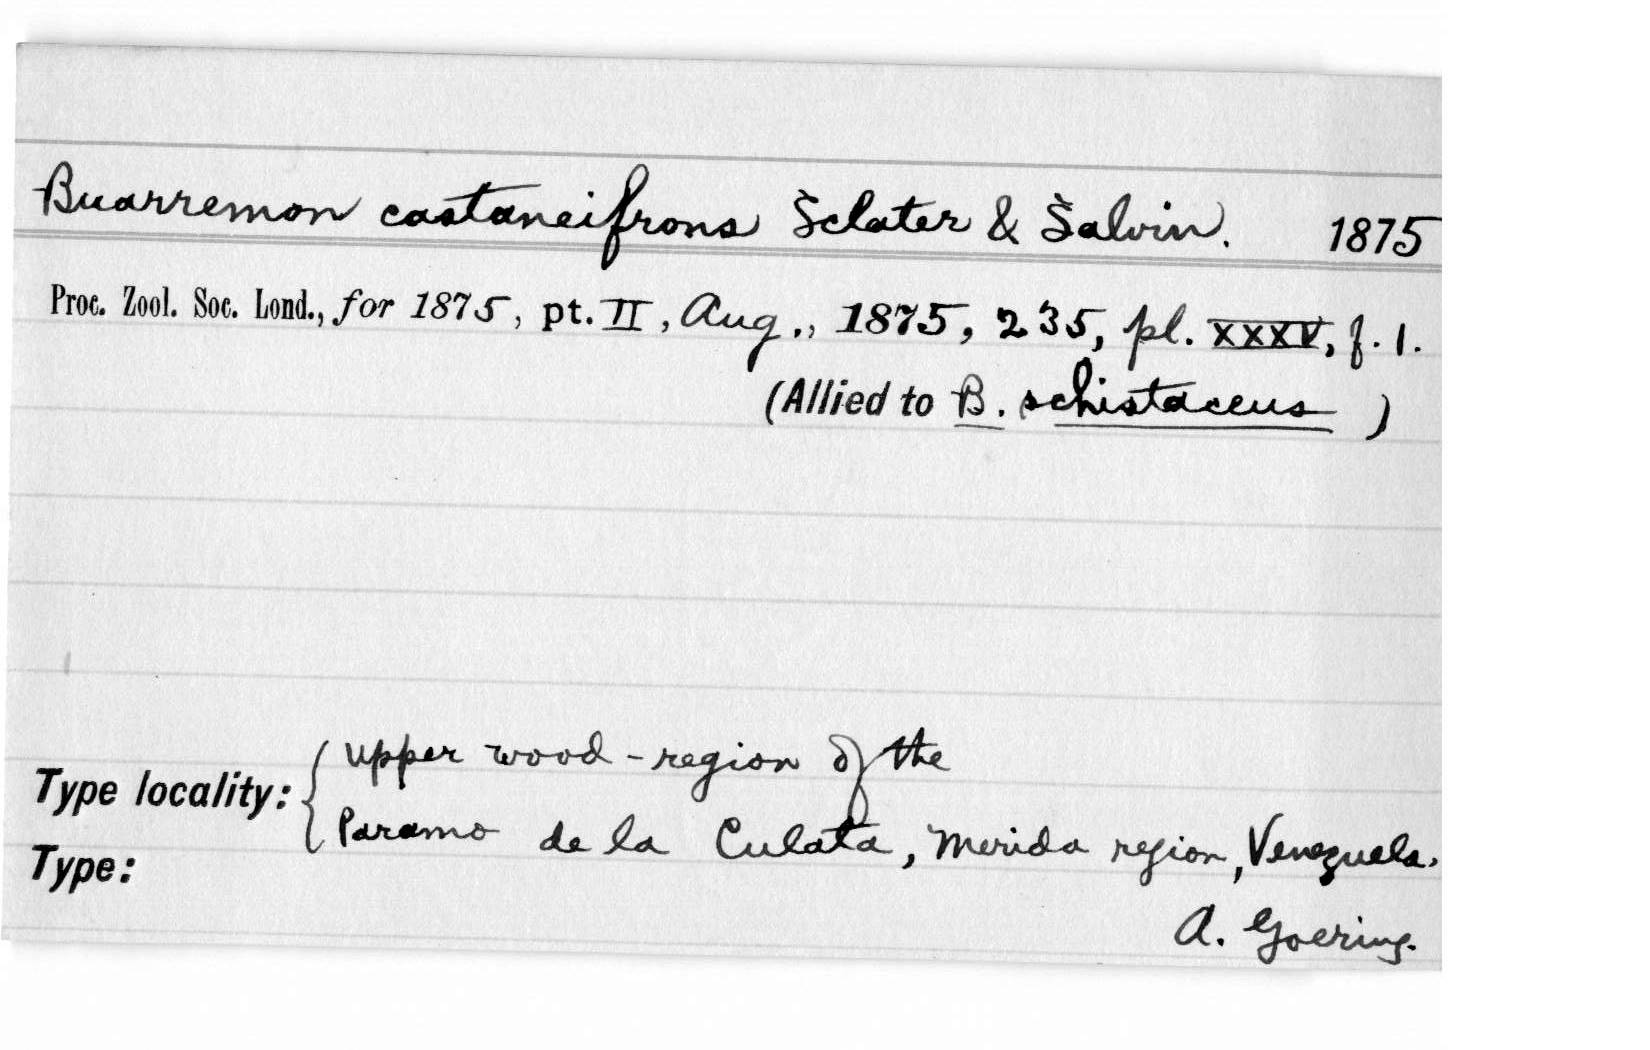 Buarremon castaneifrons Sclater & Salvin. 1875
Proc. Zool. Soc. Lond., for 1875, pt. II, Aug., 1875, 235, pl. XXXV, f. 1.
(Allied to B. schistaceus )
Type locality: { Upper wood-region of the
Paramo de la Culata, Merida region, Venezuela.
Type:
A. Goering.